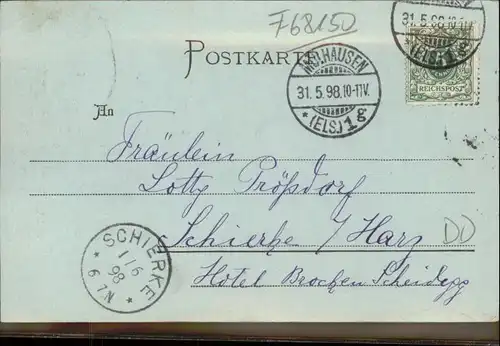 F68150
POSTKARTE
MÜLHAUSEN
31.5.98.10-11V.
* (ELS.) 1 g
31.5.98.10-11V.
(ELS.) 1 g
REICHSPOST
An
Fräulein
Lotty Prößdorf
Schierke / Harz
DD
Hotel Brocken Scheidegg
SCHIERKE
1/6
98
* 6-7N *